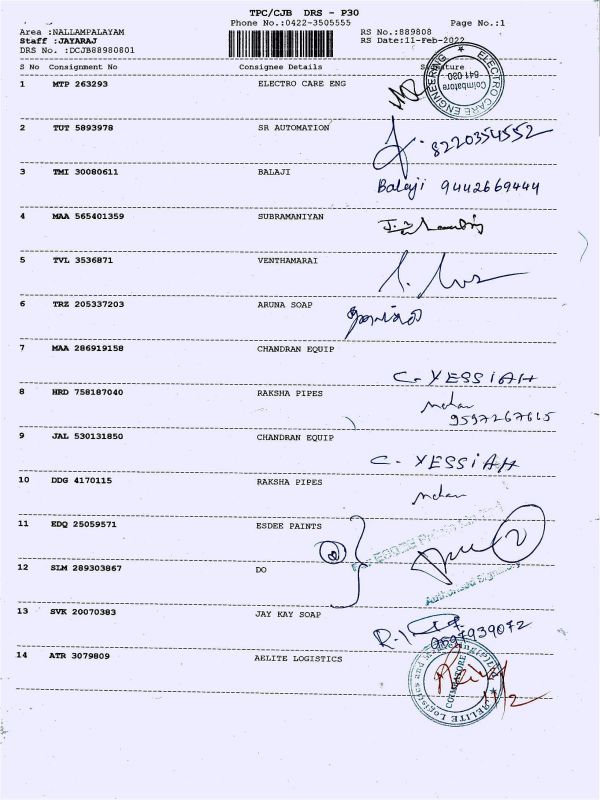 TPC/CJB DRS - P30
Phone No.:0422-3505555 Page No.:1
Area :NALLAMPALAYAM RS No.:889808
Staff :JAYARAJ RS Date:11-Feb-2022
DRS No. :DCJB88980801
S No Consignment No Consignee Details Signature
1 MTP 263293 ELECTRO CARE ENG
ELECTRO CARE ENGINEERING Coimbatore 641 030
2 TUT 5893978 SR AUTOMATION
8220354552
3 TMI 30080611 BALAJI
Balaji 9442669444
4 MAA 565401359 SUBRAMANIYAN
5 TVL 3536871 VENTHAMARAI
6 TRZ 205337203 ARUNA SOAP
7 MAA 286919158 CHANDRAN EQUIP
C. YESSIAH
8 HRD 758187040 RAKSHA PIPES
9597267615
9 JAL 530131850 CHANDRAN EQUIP
C. YESSIAH
10 DDG 4170115 RAKSHA PIPES
11 EDQ 25059571 ESDEE PAINTS
2
12 SLM 289303867 DO
Authorised Signatory
13 SVK 20070383 JAY KAY SOAP
9597939072
14 ATR 3079809 AELITE LOGISTICS
AELITE Logistics and
COIMBATORE
11/2